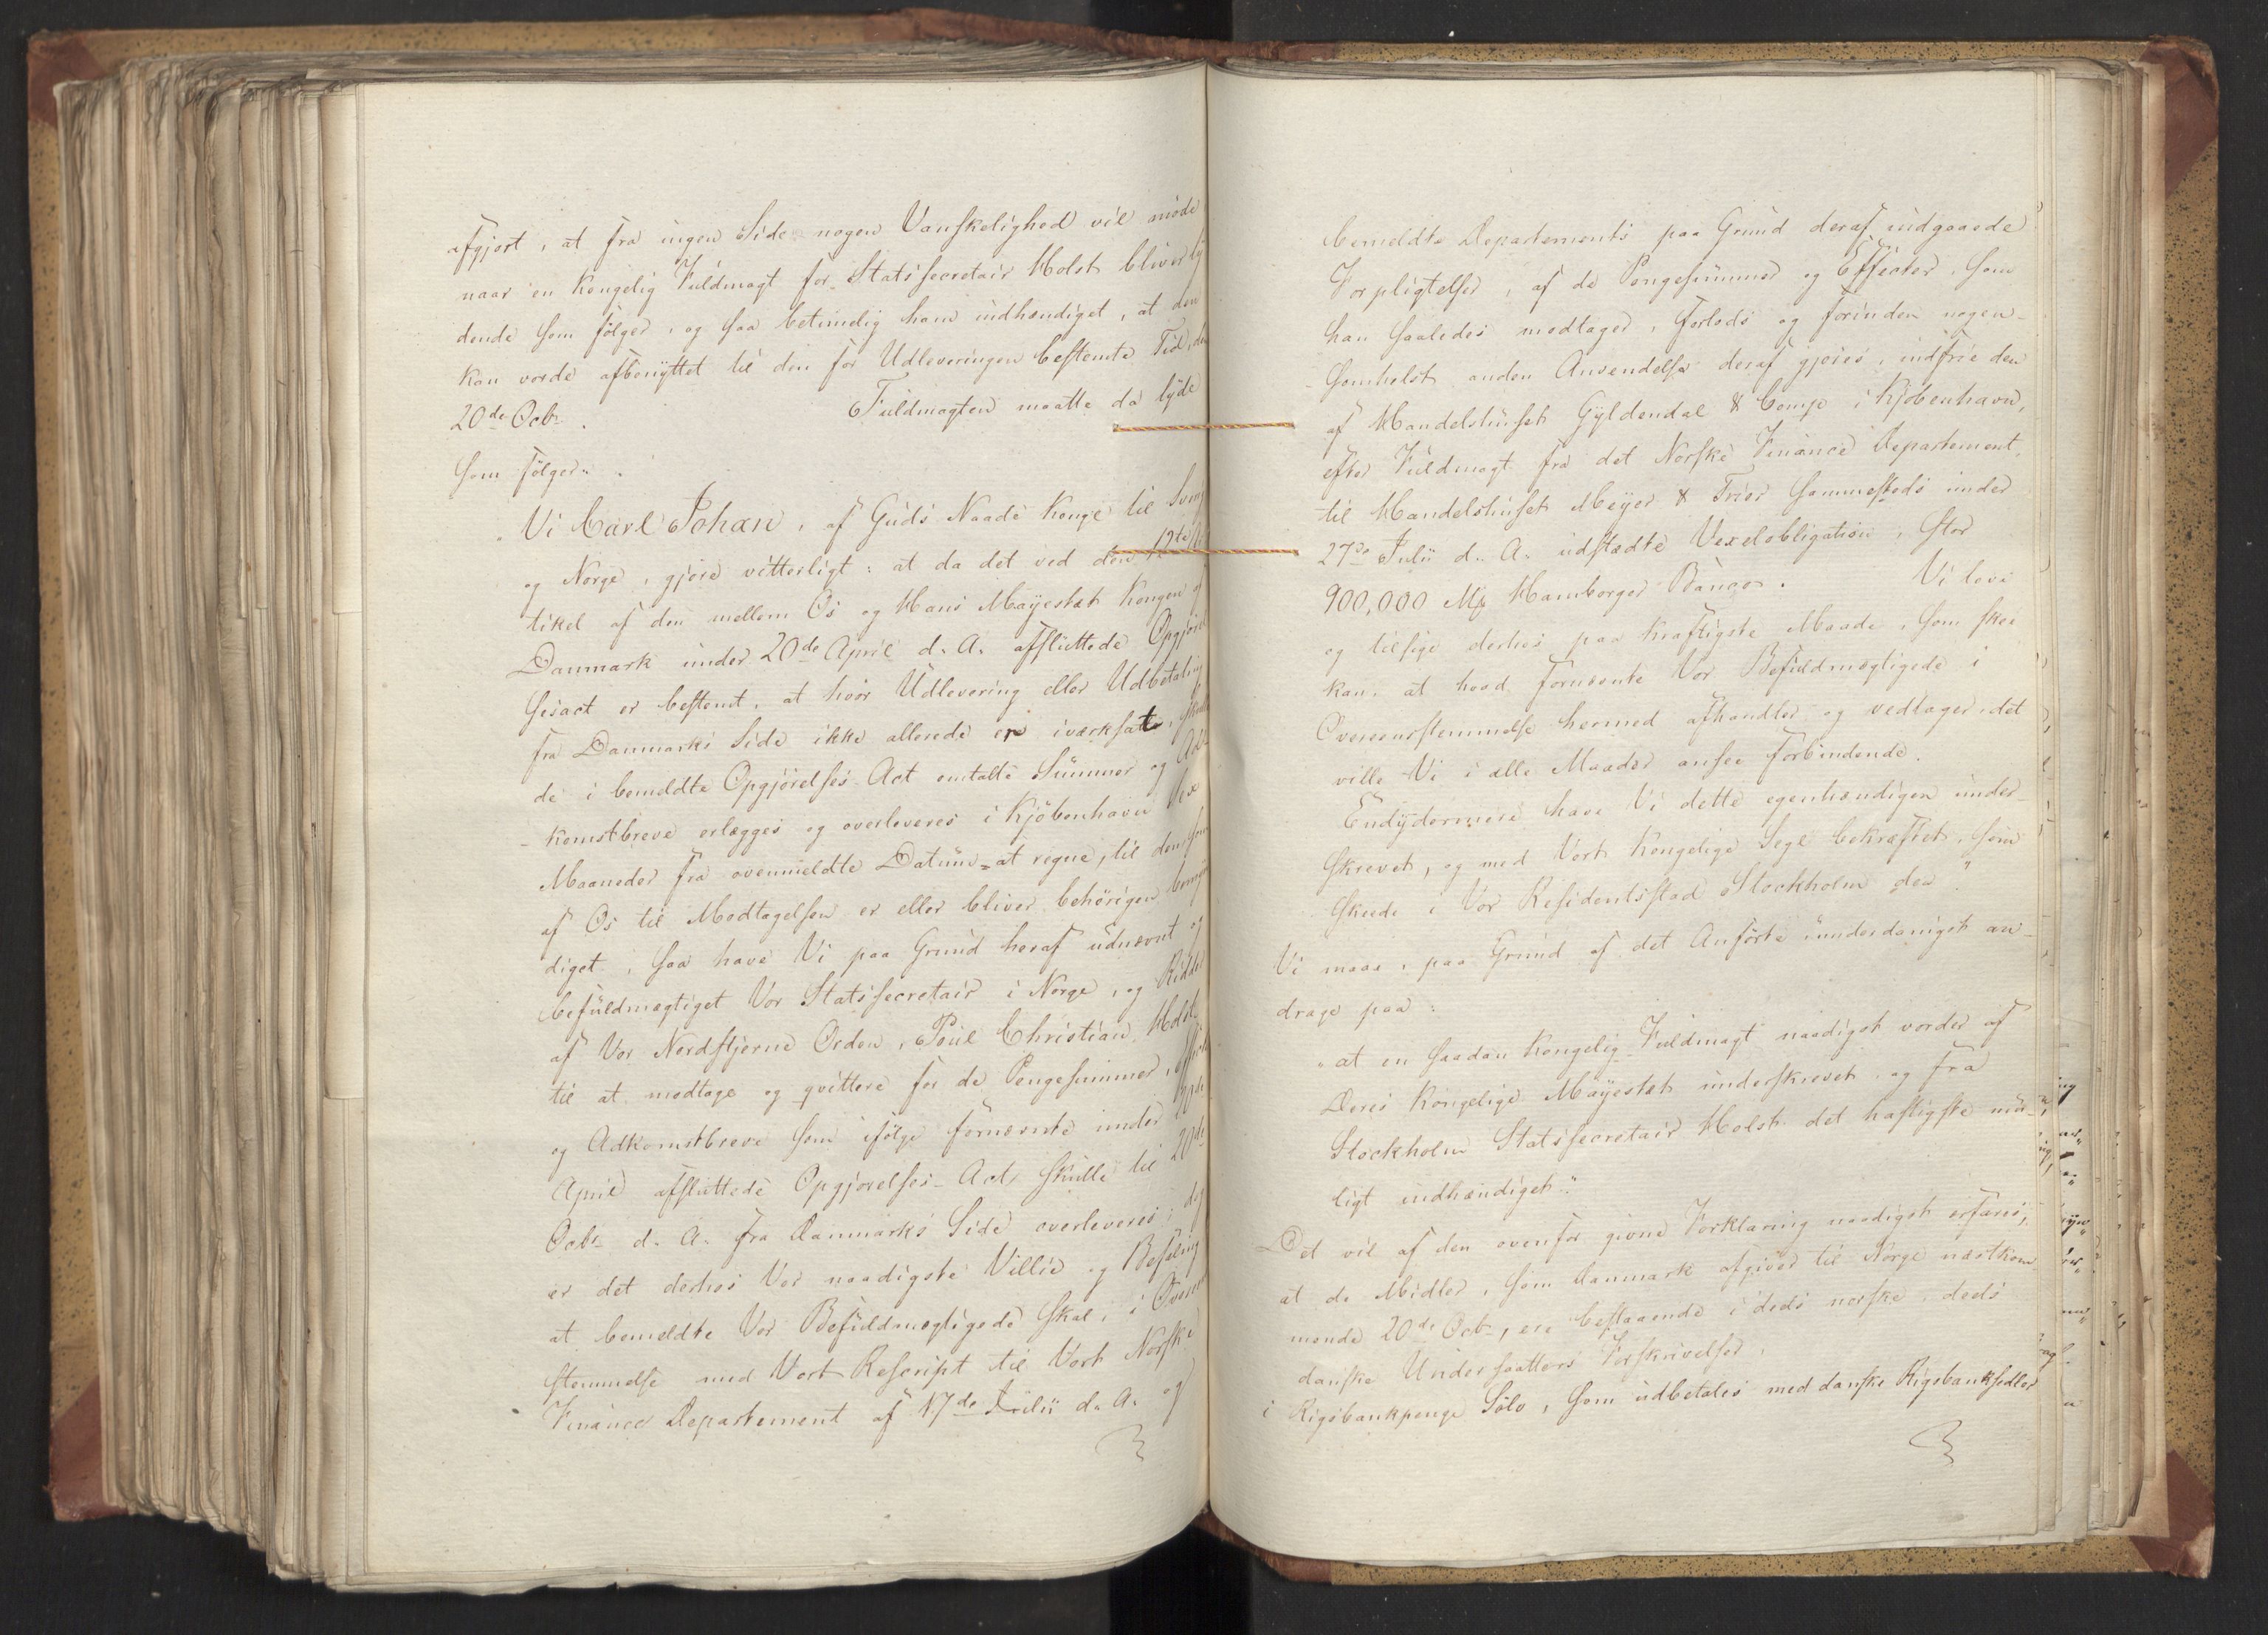 afgjort, at fra ingen Side nogen Vanskelighed vil møde
naar en Kongelig Fuldmagt for Statssecretair Holst bliver ly
dende som følger, og saa betimelig ham indhændiget, at den
kan vorde afbenyttet til den for Udleveringen bestemte Tid, den
20de Octr. Fuldmagten maatte da lyde
som følger:
"Vi Carl Johan, af Guds Naade Konge til Sverig
og Norge, gjøre vitterligt: at da det ved den 12te
tikel af den mellem Os og Hans Mayestæt Kongen af
Danmark under 20de April d. A. afsluttede Opgjørel
sesact er bestemt, at hvor Udlevering eller Udbetaling
fra Danmarks Side ikke allerede er iværksat, skulle
de i bemeldte Opgjørelses-Act omtalte Summer og Ad-
komstbreve erlægges og overleveres i Kjöbenhavn sex
Maaneder fra ovenmeldte Datum at regne, til den som
af Os til Modtagelsen er eller bliver behörigen bemyn
diget, saa have Vi paa Grund heraf udnævnt og
befuldmægtiget Vor Statssecretair i Norge, og Ridder
af Vor Nordstjerne Orden, Poul Christian Holst
til at modtage og qvittere for de Pengesummer,
og Adkomstbreve som ifölge fornævnte under 20de
April afsluttede Opgjørelses-Act, skulle til 20de
Octr d. A. fra Danmarks Side overleveres; og
er det derhos Vor naadigste Villie og Befaling
at bemeldte Vor Befuldmægtigede skal, i Overens
stemmelse med Vort Rescript til Vort Norske
Finance Departement af 17de Julii d. A. og
bemeldte Departements paa Grund deraf indgaaede
Forpligtelser, af de Pengesummer og Effecter, som
han saaledes modtager, forlods og forinden nogen-
somhelst anden Anvendelse deraf gjøres, indfrie den
af Handelshuset Gyldendal & Comp i Kjöbenhavn,
efter Fuldmagt fra det Norske Finance Departement,
til Handelshuset Meyer & Trier sammesteds under
27de Julii d. A. udstædte Vexelobligation, stor
900,000 Mk Hamborger Banco. Vi love
og tilsige derhos paa kraftigste Maade, som skee
kan, at hvad fornævnte Vor Befuldmægtigede i
Overeensstemmelse hermed afhandler og vedtager, det
ville Vi i alle Maader ansee forbindende.
Endydermere have Vi dette egenhændigen under-
skrevet, og med Vort Kongelige Segl bekræftet, som
skeede i Vor Residentsstad Stockholm den"
Vi maae, paa Grund af det Anførte underdanigst an-
drage paa:
"at en saadan Kongelig Fuldmagt naadigst vorder af
Deres Kongelige Mayestæt underskrevet og fra
Stockholm Statssecretair Holst det hastigste mu-
ligt indhændiget."
Det vil af den ovenfor givne Forklaring naadigst erfares,
at de Midler, som Danmark afgiver til Norge næstkom
mende 20de Octr, ere bestaaende i deels norske, deels
danske Undersaatters Forskrivelser,
i Rigsbankpenge Sölv, som udbetales med danske Rigsbanksedler